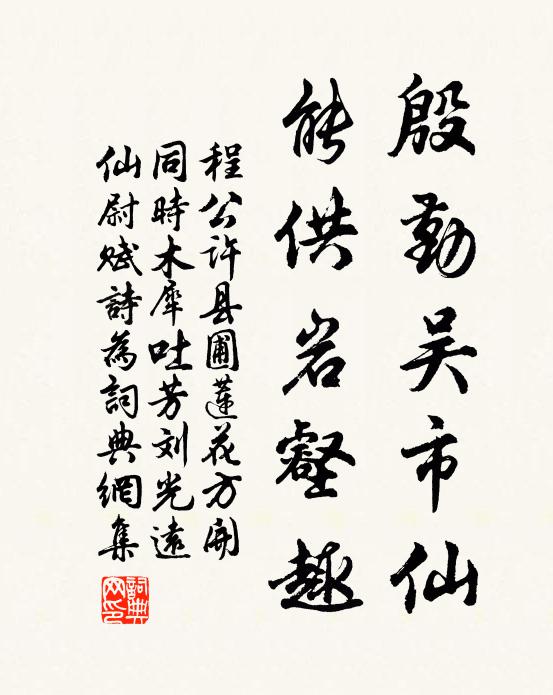 殷勤吴市仙
能供岩壑趣
程公许县圃莲花方開
同時木犀吐芳刘光遠
仙尉赋詩為詞典網集
詞典網印